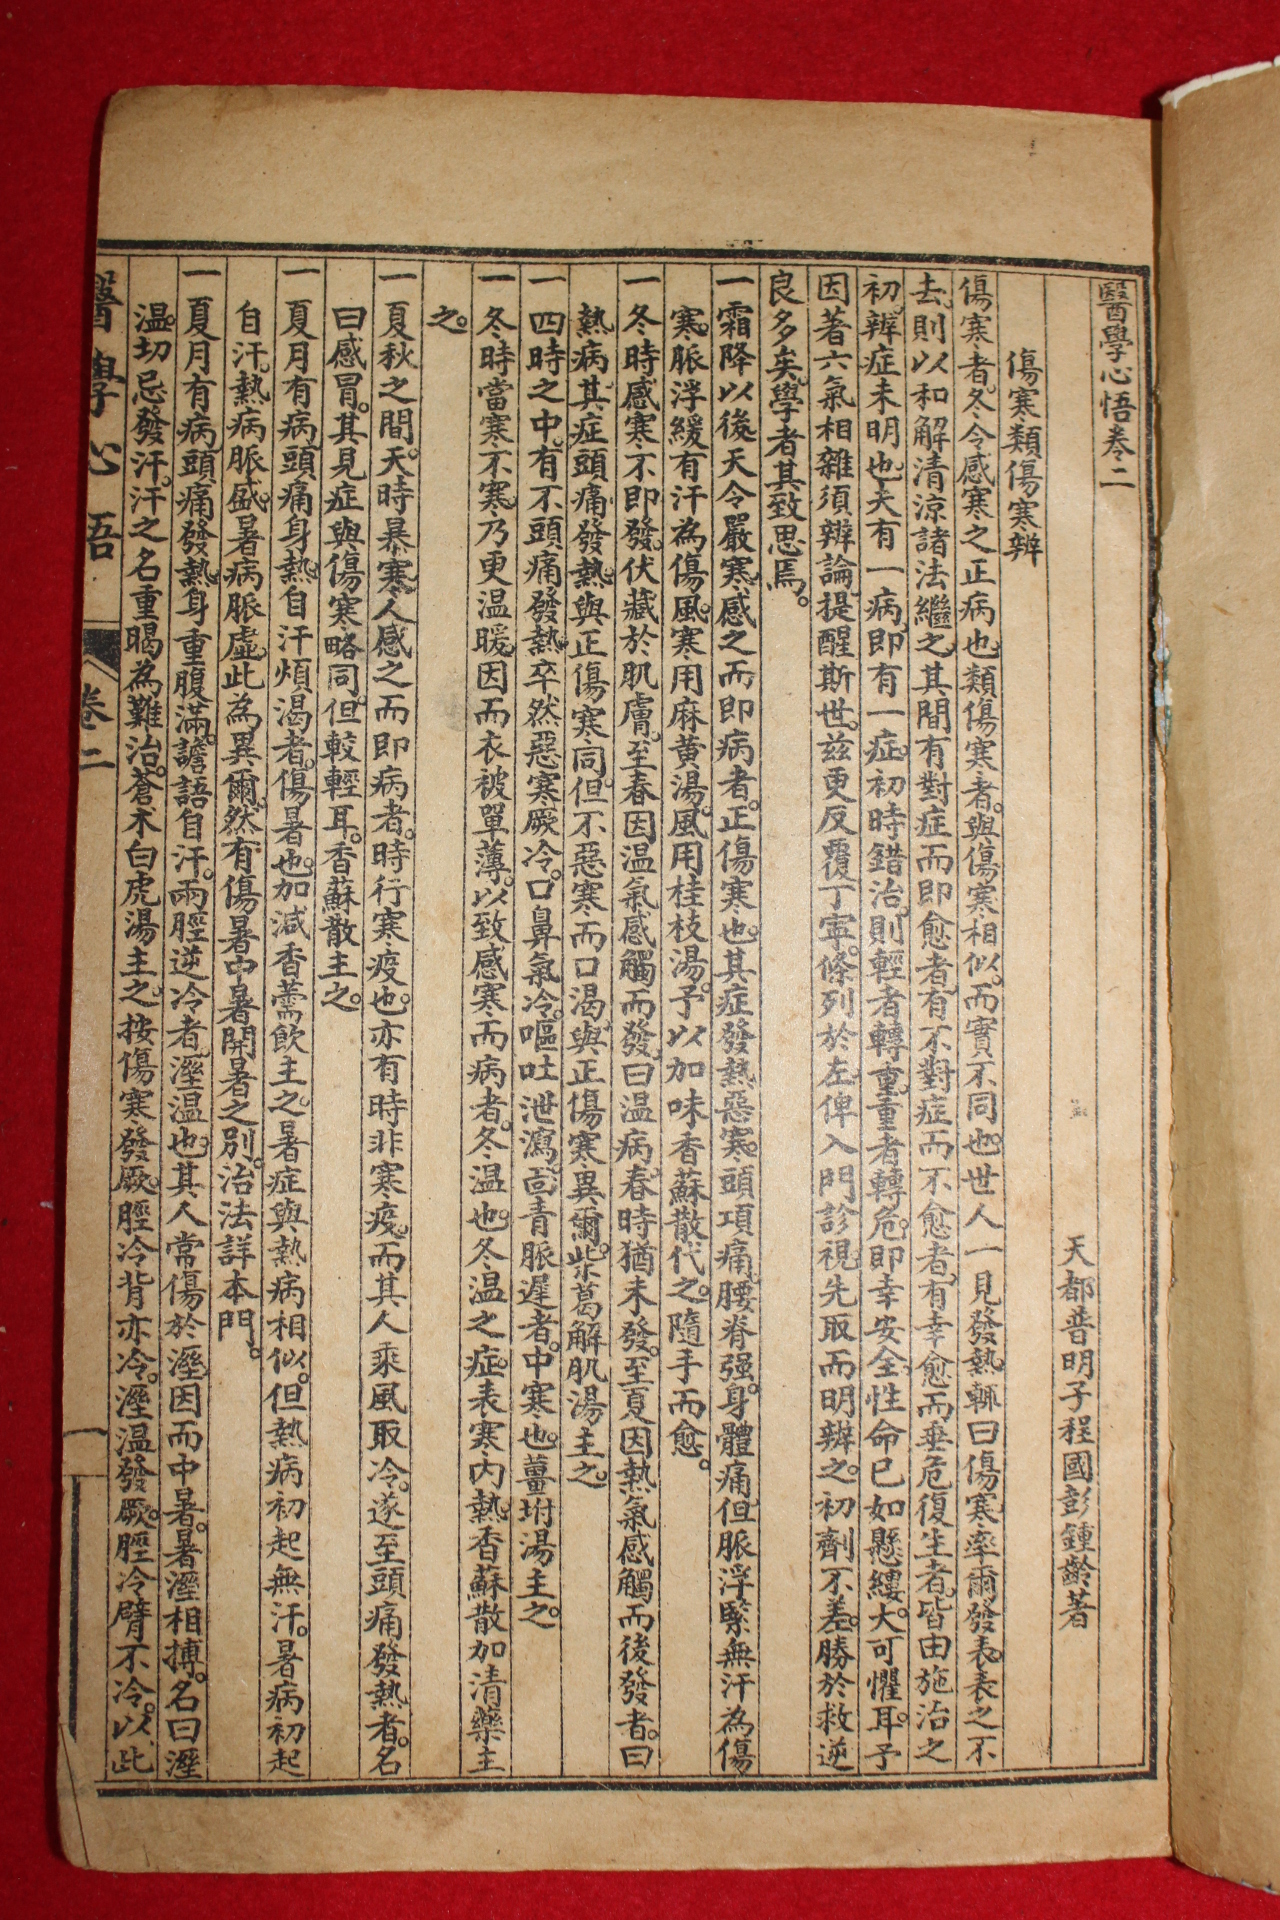 醫學心悟卷二
天都普明子程國彭鍾齡著
傷寒類傷寒辨
傷寒者。冬令感寒之正病也。類傷寒者。與傷寒相似。而實不同也。世人一見發熱。輒曰傷寒。率爾發表。表之不
去。則以和解清涼諸法繼之。其間有對症而即愈者。有不對症而不愈者。有幸愈而垂危復生者。皆由施治之
初。辨症未明也。夫有一病。即有一症。初時錯治。則輕者轉重。重者轉危。即幸安全。性命已如懸縷。大可懼耳。予
因著六氣相雜須辨論。提醒斯世。茲更反覆丁寧。條列於左。俾入門診視。先取而明辨之。初劑不差。勝於救逆
良多矣。學者其致思焉。
一霜降以後。天令嚴寒。感之而即病者。正傷寒也。其症發熱惡寒。頭項痛。腰脊强。身體痛。但脈浮緊無汗為傷
寒。脈浮緩有汗為傷風。寒用麻黃湯。風用桂枝湯。予以加味香蘇散代之。隨手而愈。
一冬時感寒不即發。伏藏於肌膚。至春因温氣感觸而發。曰温病。春時猶未發。至夏因熱氣感觸而後發者。曰
熱病。其症頭痛發熱。與正傷寒同。但不惡寒而口渴。與正傷寒異爾。柴葛解肌湯主之。
一四時之中。有不頭痛發熱。卒然惡寒厥冷。口鼻氣冷。嘔吐泄瀉。面青脈遲者。中寒也。薑坿湯主之。
一冬時當寒不寒。乃更温暖。因而衣被單薄。以致感寒而病者。冬温也。冬温之症。表寒內熱。香蘇散加清藥主
之。
一夏秋之間。天時暴寒。人感之而即病者。時行寒疫也。亦有時非寒疫。而其人乘風取冷。遂至頭痛發熱者。名
曰感冒。其見症與傷寒略同。但較輕耳。香蘇散主之。
一夏月有病頭痛身熱。自汗煩渴者。傷暑也。加減香薷飲主之。暑症與熱病相似。但熱病初起無汗。暑病初起
自汗。熱病脈盛。暑病脈虛。此為異爾。然有傷暑中暑開暑之別。治法詳本門。
一夏月有病頭痛發熱。身重腹滿。譫語自汗。兩脛逆冷者。溼温也。其人常傷於溼。因而中暑。暑溼相搏。名曰溼
温。切忌發汗。汗之名重暍。為難治。蒼朮白虎湯主之。按傷寒發厥。脛冷背亦冷。溼温發厥。脛冷臂不冷。以此
醫學心悟 卷二 一